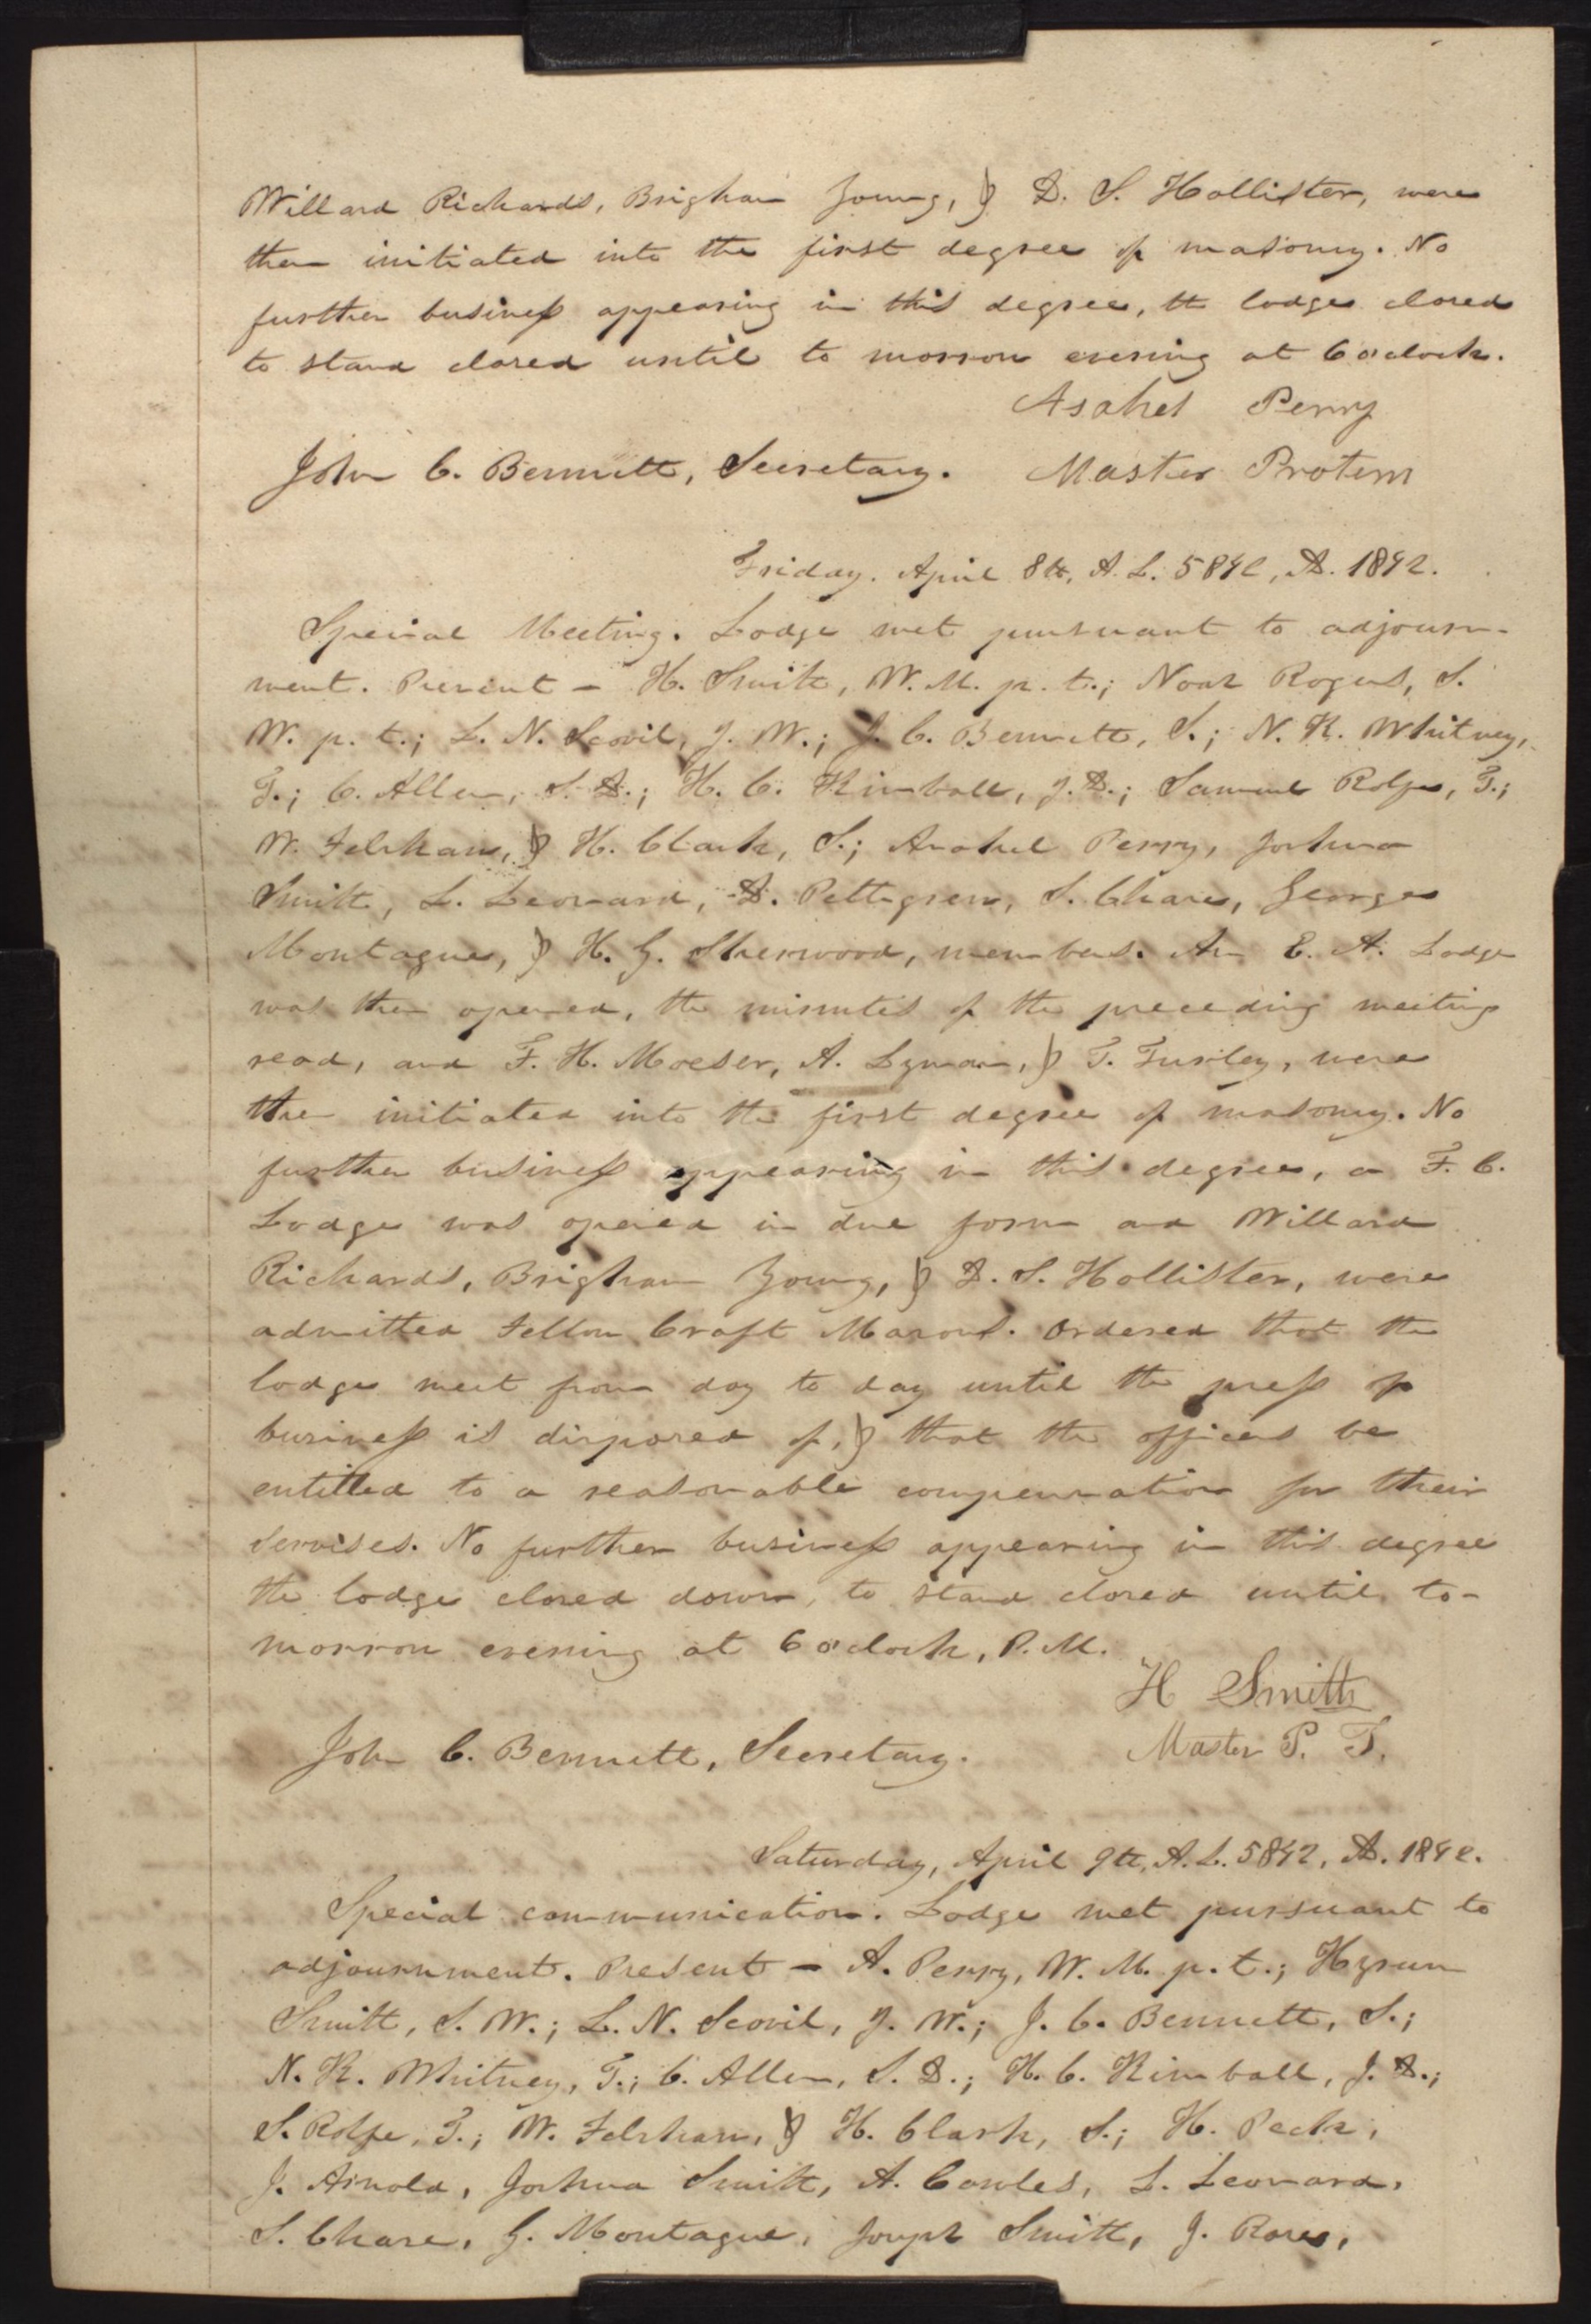 Willard Richards, Brigham Young, & D. S. Hollister, were
then initiated into the first degree of masonry. No
further business appearing in this degree, the lodge closed
to stand closed until to morrow evening at 6 o'clock.
Asahel Perry
John C. Bennett, Secretary. Master Protem
Friday. April 8th, A. L. 5842, A.D. 1842.
Special Meeting. Lodge met pursuant to adjourn-
ment. Present – H. Smith, W. M. p. t.; Noah Rogers, S.
W. p. t.; L. N. Scovil, J. W.; J. C. Bennett, S.; N. K. Whitney,
T.; C. Allen, S. D.; H. C. Kimball, J. D.; Samuel Rolfe, T.;
W. Felshaw, & H. Clark, S.; Asahel Perry, Joshua
Smith, L. Leonard, D. Pettegrew, S. Chase, George
Montague, & H. G. Sherwood, members. An E. A. Lodge
was then opened, the minutes of the preceding meeting
read, and F. H. Moeser, A. Lyman, & T. Turley, were
then initiated into the first degree of masonry. No
further business appearing in this degree, a F. C.
Lodge was opened in due form and Willard
Richards, Brigham Young, & D. S. Hollister, were
admitted Fellow Craft Masons. Ordered that the
lodge meet from day to day until the press of
business is disposed of, & that the officers be
entitled to a reasonable compensation for their
servises. No further business appearing in this degree
the lodge closed down, to stand closed until to-
morrow evening at 6 o'clock, P.M.
H Smith
John C. Bennett, Secretary. Master P. T.
Saturday, April 9th, A. L. 5842, A.D. 1842.
Special communication. Lodge met pursuant to
adjournment. Present – A. Perry, W. M. p. t.; Hyrum
Smith, S. W.; L. N. Scovil, J. W.; J. C. Bennett, S.;
N. K. Whitney, T.; C. Allen, S. D.; H. C. Kimball, J. D.;
S. Rolfe, T.; W. Felshaw, & H. Clark, S.; H. Peck,
J. Arnold, Joshua Smith, A. Cowles, L. Leonard,
S. Chase, G. Montague, Joseph Smith, J. Rose,